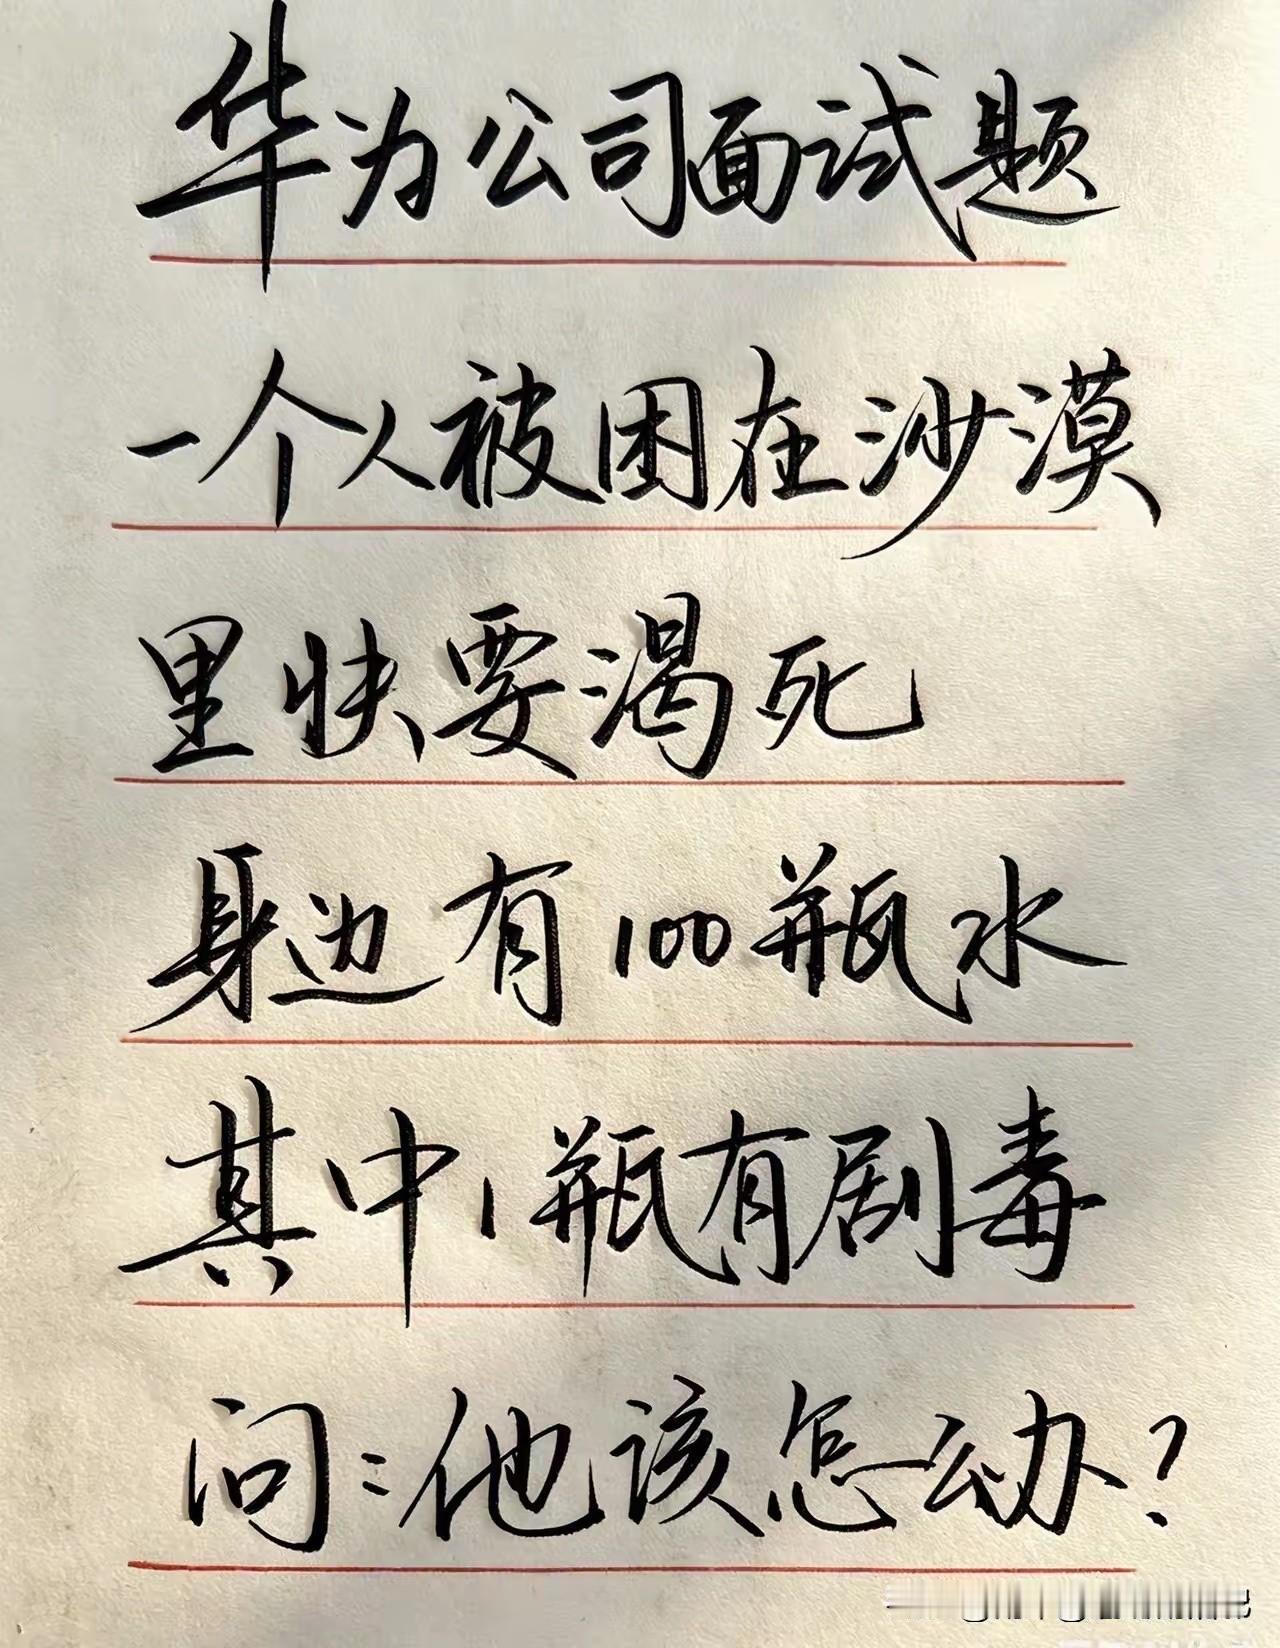 华为公司面试题
一个人被困在沙漠
里快要渴死
身边有100瓶水
其中1瓶有剧毒
问:他该怎么办?